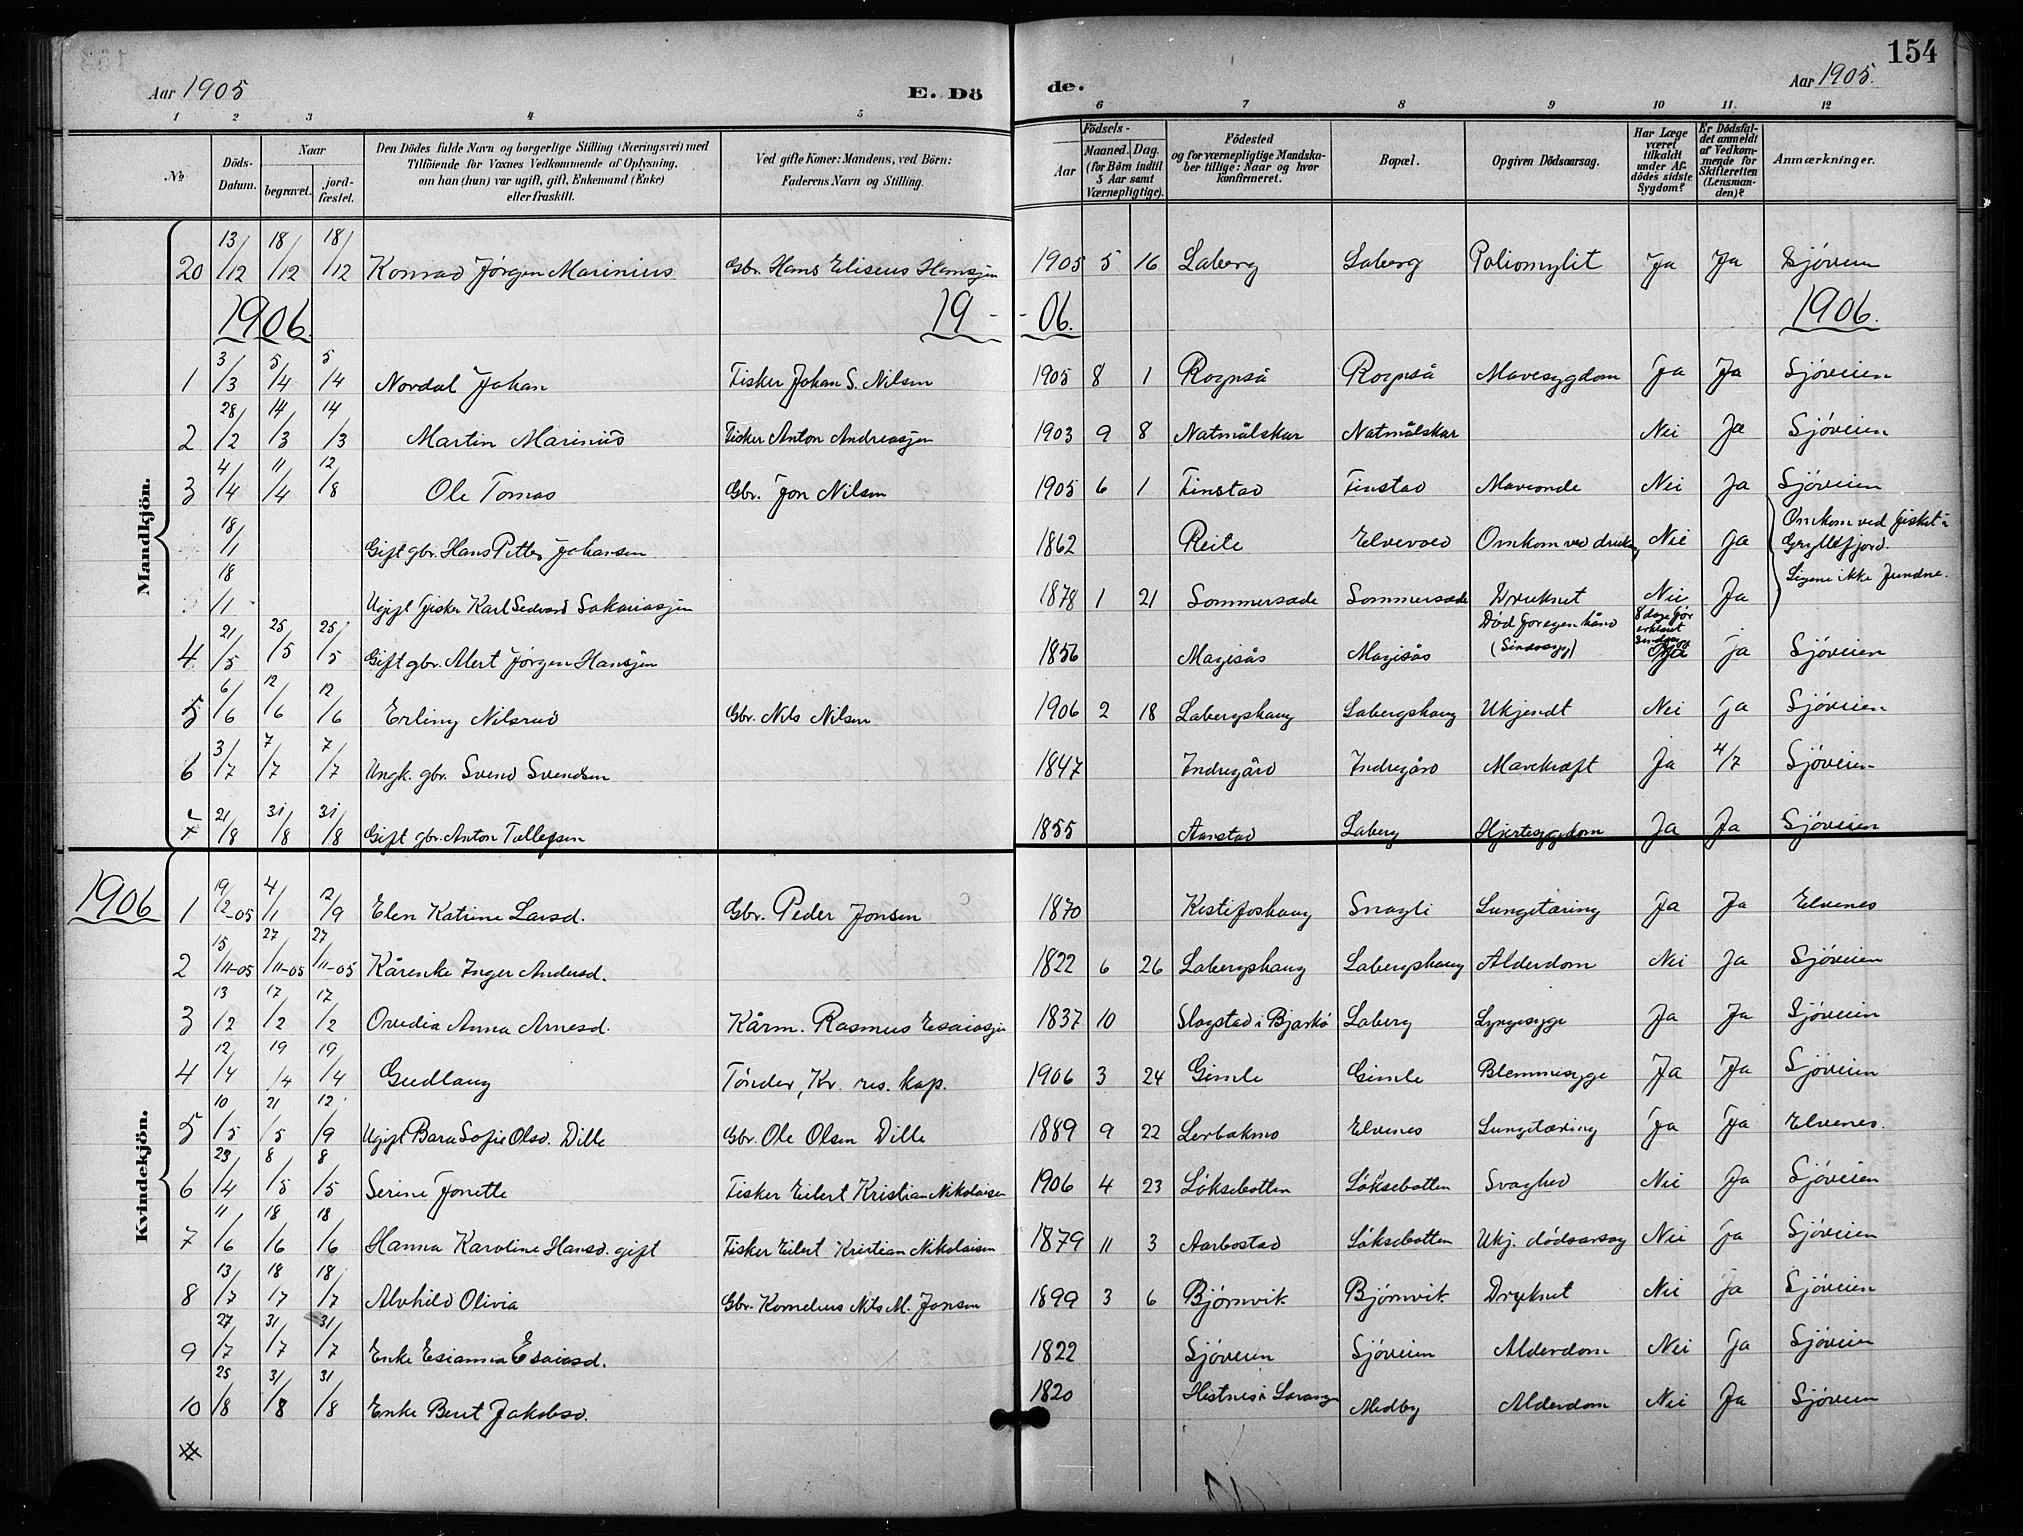 154
Aar 1905
E. Dö
de.
Aar 1905.
1 2 3 4 5 6 7 8 9 10 11. 12
No
Döds-Datum.
Naar
begravet.
jord-fæstet.
Den Dödes fulde Navn og borgerlige Stilling (Næringsvei) med
Tilföiende for Voxnes Vedkommende af Oplysning,
om han (hun) var ugift, gift, Enkemand (Enke)
eller fraskilt.
Ved gifte Koner: Mandens, ved Börn:
Faderens Navn og Stilling.
Födsels-
Aar
Maaned. Dag.
(for Börn indtil
5 Aar samt
Værnepligtige).
Födested
og for værnepligtige Mandska-
ber tillige: Naar og hvor
konfirmeret.
Bopæl.
Opgiven Dödsaarsag.
Har Læge
været
tilkaldt
under Af-
dödes sidste
Sygdom?
Er Dödsfal-
det anmeldt
af Vedkom-
mende for
Skifteretten
(Lensman-
den)?
Anmærkninger.
Mandkjön.
20 13/12 18/12 18/12 Konrad Jørgen Marinius Gbr. Hans Eliseus Hansjen 1905 5 16 Laberg Laberg Poliomylit Ja Ja Sjöveien
1906. 19 - - 06. 1906.
1 3/3 5/4 5/4 Nordal Johan Fisker Johan S. Nilsen 1905 8 1 Rognså Rognså Mavesygdom Ja Ja Sjöveien
2 28/2 14/3 14/3 Martin Marinius Fisker Anton Andreasjen 1903 9 8 Natmålskar Natmålskar Nei Ja Sjöveien
3 4/4 11/4 12/8 Ole Tomas Gbr. Jon Nilsen 1905 6 1 Finstad Finstad Maveonde Nei Ja Sjöveien
18/1 Gift gbr. Hans Petter Johansen 1862 Reite Elvevold Omkom ved Nei Ja Omkom ved fisket i
Gryllefjord.
18/1 Ugift fisker Karl Sedvard Sakariasjen 1878 1 21 Sommersæde Sommersæde Druknet Nei Ja Ligene ikke fundne.
4 21/5 25/5 25/5 Gift gbr. Alert Jørgen Hansjen 1856 Magisås Magisås Død for egen hånd
(Sindssyg) 8 dage før
erklæret
Ja Ja Sjöveien
5 6/6 12/6 12/6 Erling Nilsrud Gbr. Nils Nilsen 1906 2 18 Labergshaug Labergshaug Ukjendt Nei Ja Sjöveien
6 3/7 7/7 7/7 Ungk. gbr. Svend Svendsen 1847 Indregård Indregård Mavekræft Ja 4/7 Sjöveien
7 21/8 31/8 31/8 Gift gbr. Anton Tollefsen 1855 Aanstad Laberg Hjertesygdom Ja Ja Sjöveien
Kvindekjön.
1906 1 19/12-05 4/1 12/9 Elen Katrine Larsd. Gbr. Peder Jonsen 1870 Kistefoshaug Snagli Lungetæring Ja Ja Elvenes
2 15/11-05 27/11-05 27/11-05 Kårenke Inger Andersd. 1822 6 26 Labergshaug Labergshaug Alderdom Nei Ja Sjöveien
3 13/2 17/2 17/2 Ovedia Anna Arnesd. Kårm. Rasmus Esaiasjen 1837 10 Slagstad i Bjarkö Laberg Lyngesyge Ja Ja Sjöveien
4 12/4 19/4 19/4 Gudlaug Tönder, Kr. res. kap. 1906 3 24 Gimle Gimle Blemmesyge Ja Ja Sjöveien
5 10/5 21/5 12/9 Ugift Bara Sofie Olsd. Dille Gbr. Ole Olsen Dille 1889 9 22 Lerbakmo Elvenes Lungetæring Ja Ja Elvenes.
6 23/4 8/5 8/5 Serine Jonette Fisker Eilert Kristian Nikolaisen 1906 4 23 Löksebotten Löksebotten Svaghed Nei Ja Sjöveien
7 11/6 18/6 18/6 Hanna Karoline Hansd. gift Fisker Eilert Kristian Nikolaisen 1879 11 3 Aarbostad Löksebotten Ukj. dödsarsag Nei Ja Sjöveien
8 13/7 18/7 18/7 Alvhild Olivia Gbr. Kornelius Nils M. Jonsen 1899 3 6 Bjørnvik Bjørnvik. Druknet Nei Ja Sjöveien
9 27/7 31/7 31/7 Enke Esianna Esaiasd. 1822 Sjöveien Sjöveien Alderdom Nei Ja Sjöveien
10 25/8 31/8 31/8 Enke Berit Jakobsd. 1820 Hestnes i Lavangen Medby Alderdom Nei Ja Sjöveien